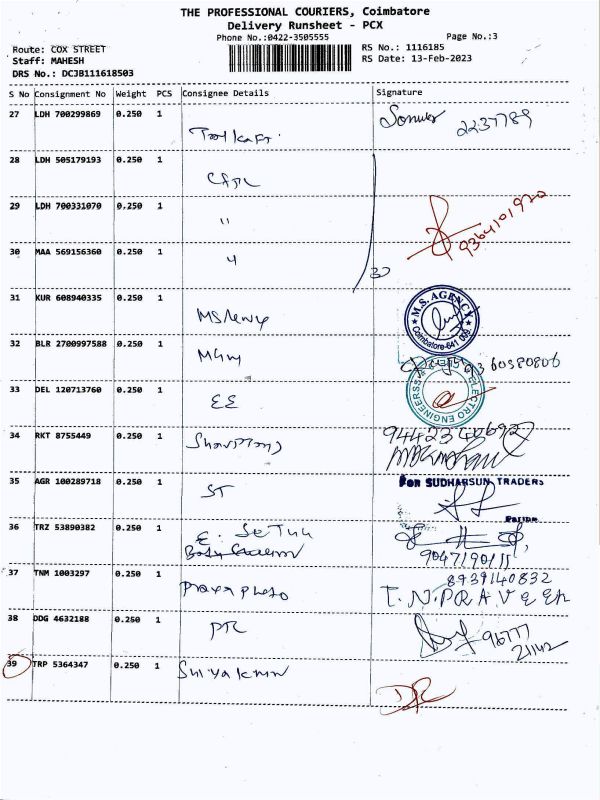 THE PROFESSIONAL COURIERS, Coimbatore
Delivery Runsheet - PCX
Phone No.:0422-3505555
Page No.:3
Route: COX STREET
RS No.: 1116185
Staff: MAHESH
RS Date: 13-Feb-2023
DRS No.: DCJB111618503
S No Consignment No Weight PCS Consignee Details Signature
27 LDH 700299869 0.250 1
2237789
28 LDH 505179193 0.250 1
29 LDH 700331070 0.250 1 "
9364101920
30 MAA 569156360 0.250 1 "
31 KUR 608940335 0.250 1
M.S. AGENCY
Coimbatore-641 009
32 BLR 2700997588 0.250 1
33 DEL 120713760 0.250 1 EE
ELECTRO ENGINEERSS
34 RKT 8755449 0.250 1
35 AGR 100289718 0.250 1 ST
For SUDHARSUN TRADERS
36 TRZ 53890382 0.250 1
37 TNM 1003297 0.250 1
8939140832
T.N.PRAVEEN
38 DDG 4632188 0.250 1 PTC
96777
21142
39 TRP 5364347 0.250 1